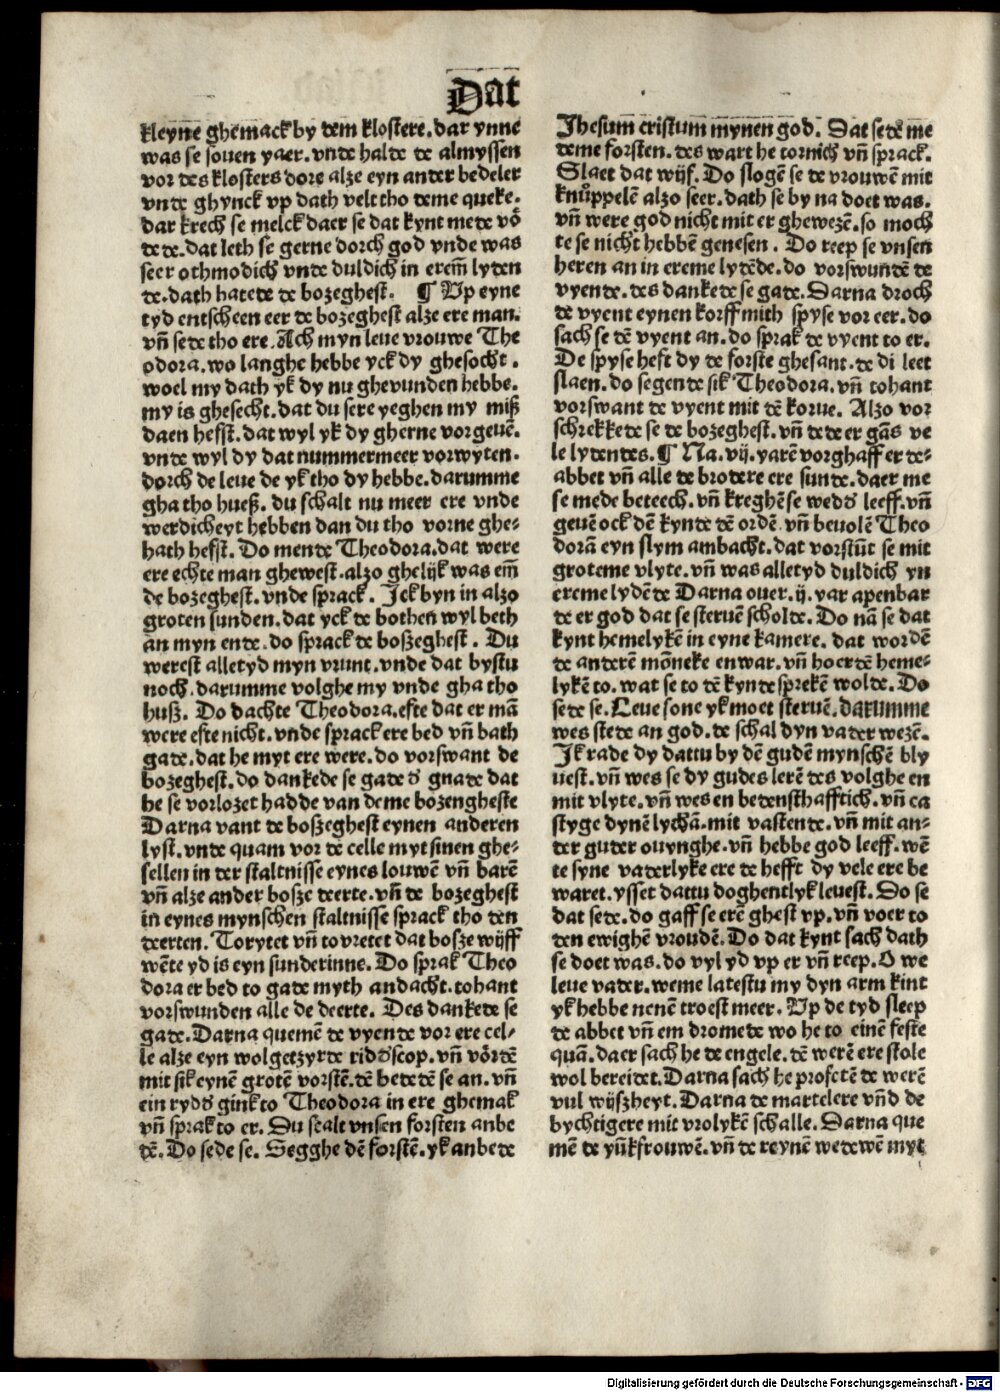 Dat
kleyne ghemack by dem klostere. dar ynne
was se souen yaer. vnde halde de almyssen
vor des klosters dore alze eyn ander bedeler
vnde ghynck vp dath velt tho deme queke.
dar krech se melck daer se dat kynt mede vō
dede. dat leth se gerne dorch god vnde was
seer othmodich vnde duldich in erem̄ lyden
de. dath hatede de bozeghest. ¶ Vp eyne
tyd entscheen eer de bozeghest alze ere man.
vn̄ sede tho ere. Ach myn leue vrouwe The
odora. wo langhe hebbe yck dy ghesocht.
woel my dath yk dy nu ghevunden hebbe.
my is ghesecht. dat du sere yeghen my miß
daen hefst. dat wyl yk dy gherne vorgeuē.
vnde wyl dy dat nummermeer vorwyten.
dorch de leue de yk tho dy hebbe. darumme
gha tho hueß. du schalt nu meer ere vnde
werdicheyt hebben dan du tho vorne ghe⸗
hath hefst. Do mende Theodora. dat were
ere echte man ghewest. alzo ghelijk was em̄
de bozeghest. vnde sprack. Ick byn in alzo
groten sunden. dat yck de bothen wyl beth
an myn ende. do sprack de boßeghest. Du
werest alletyd myn vrunt. vnde dat bystu
noch. darumme volghe my vnde gha tho
huß. Do dachte Theodora. efte dat er mā
were efte nicht. vnde sprack ere bed vn̄ bath
gade. dat he myt ere were. do vorswant de
bozeghest. do dankede se gade đ gnade dat
he se vorlozet hadde van deme bozengheste
Darna vant de boßeghest eynen anderen
lyst. vnde quam vor de celle myt sinen ghe⸗
sellen in der staltnisse eynes louwē vn̄ barē
vn̄ alze ander bosze deerte. vn̄ de bozeghest
in eynes mynschen staltnisse sprack tho den
deerten. Torytet vn̄ tovretet dat bosze wijff
wēte yd is eyn sunderinne. Do sprak Theo
dora er bed to gade myth andacht. tohant
vorswunden alle de deerte. Des dankede se
gade. Darna quemē de vyende vor ere cel⸗
le alze eyn wolgetzyrde ridđscop. vn̄ vȫrdē
mit sik eynē grotē vorstē. dē bededē se an. vn̄
ein rydđ gink to Theodora in ere ghemak
vn̄ sprak to er. Du scalt vnsen forsten anbe
dē. Do sede se. Segghe dē forstē. yk anbede
Jhesum cristum mynen god. Dat sedē me
deme forsten. des wart he tornich vn̄ sprack.
Slaet dat wijf. Do slogē se de vrouwē mit
knůppelē alzo seer. dath se by na doet was.
vn̄ were god nicht mit er ghewezē. so moch
te se nicht hebbē genesen. Do reep se vnsen
heren an in ereme lydēde. do vorswundē de
vyende. des dankede se gade. Darna droch
de vyent eynen korff mith spyse vor eer. do
sach se dē vyent an. do sprak de vyent to er.
De spyse heft dy de forste ghesant. de di leet
slaen. do segende sik Theodora. vn̄ tohant
vorswant de vyent mit dē korue. Alzo vor
schrekkede se de bozeghest. vn̄ dede er gās ve
le lydendes. ¶ Na. vij. yarē vorghaff er de⸗
abbet vn̄ alle de brodere ere sunde. daer me
se mede beteech. vn̄ kreghē se wedđ leeff. vn̄
geuē ock dē kynde dē ordē. vn̄ beuolē Theo
dorā eyn slym ambacht. dat vorstūt se mit
groteme vlyte. vn̄ was alletyd duldich yn
ereme lydē de Darna ouer. ij. yar apenbar
de er god dat se steruē scholde. Do nā se dat
kynt hemelykē in eyne kamere. dat wordē
de anderē mōneke enwar. vn̄ hoerdē heme⸗
lykē to. wat se to dē kynde sprekē wolde. Do
sede se. Leue sone yk moet steruē. darumme
wes stede an god. de schal dyn vader wezē.
Ik rade dy dattu by dē gudē mynschē bly
uest. vn̄ wes se dy gudes lerē des volghe en
mit vlyte. vn̄ wes en bedensthafftich. vn̄ ca
styge dynē lychā. mit vastende. vn̄ mit an⸗
der guder ouynghe. vn̄ hebbe god leeff. wē
te syne vaderlyke ere de hefft dy vele ere be
waret. ysset dattu doghentlyk leuest. Do se
dat sede. do gaff se erē ghest vp. vn̄ voer to
den ewighē vroudē. Do dat kynt sach dath
se doet was. do vyl yd vp er vn̄ reep. O we
leue vader. weme latestu my dyn arm kint
yk hebbe nenē troest meer. Vp de tyd sleep
de abbet vn̄ em dromede wo he to einē feste
quā. daer sach he de engele. dē werē ere stole
wol bereidet. Darna sach he profetē de werē
vul wijszheyt. Darna de martelere vn̄d de
bychtigere mit vrolykē schalle. Darna que
mē de yūkfrouwē. vn̄ de reynē wedewē myt